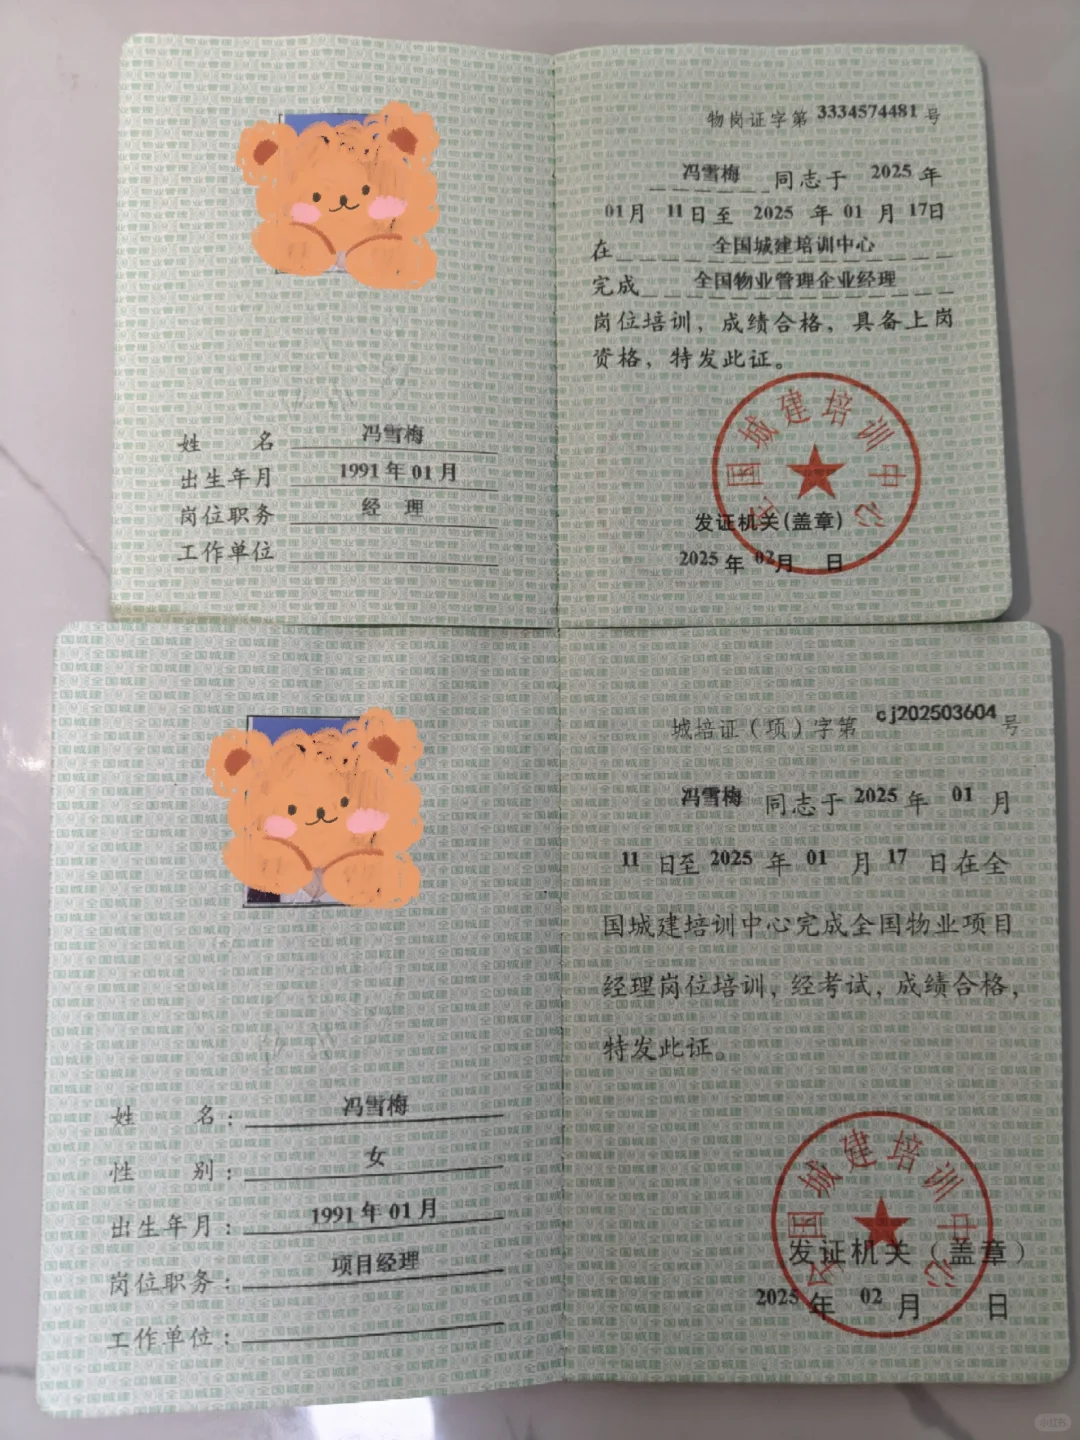 物岗证字第 3334574481 号
冯雪梅 同志于 2025 年
01月 11日至 2025 年 01 月 17日
在 全国城建培训中心
完成 全国物业管理企业经理
岗位培训，成绩合格，具备上岗
资格，特发此证。
全国城建培训中心
发证机关(盖章)
2025 年 02月 日
姓 名 冯雪梅
出生年月 1991 年 01 月
岗位职务 经 理
工作单位
城培证（项）字第 cj202503604 号
冯雪梅 同志于 2025 年 01 月
11 日至 2025 年 01 月 17 日在全
国城建培训中心完成全国物业项目
经理岗位培训，经考试，成绩合格，
特发此证。
全国城建培训中心
发证机关（盖章）
2025 年 02 月 日
姓 名： 冯雪梅
性 别： 女
出生年月： 1991 年 01 月
岗位职务： 项目经理
工作单位：
小红书